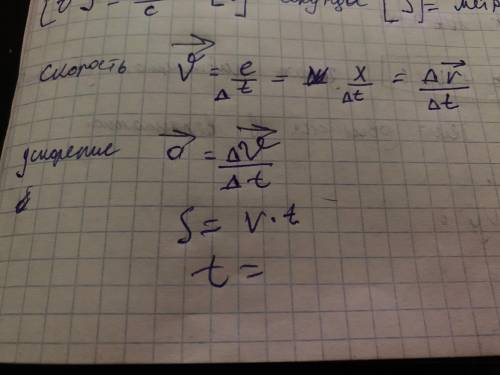 [υ] = м/с [t] секунды [S] = метр
скорость v⃗ = e/Δt = x/Δt = Δr⃗/Δt
ускорение a⃗ = Δv⃗/Δt
S = v·t
t =